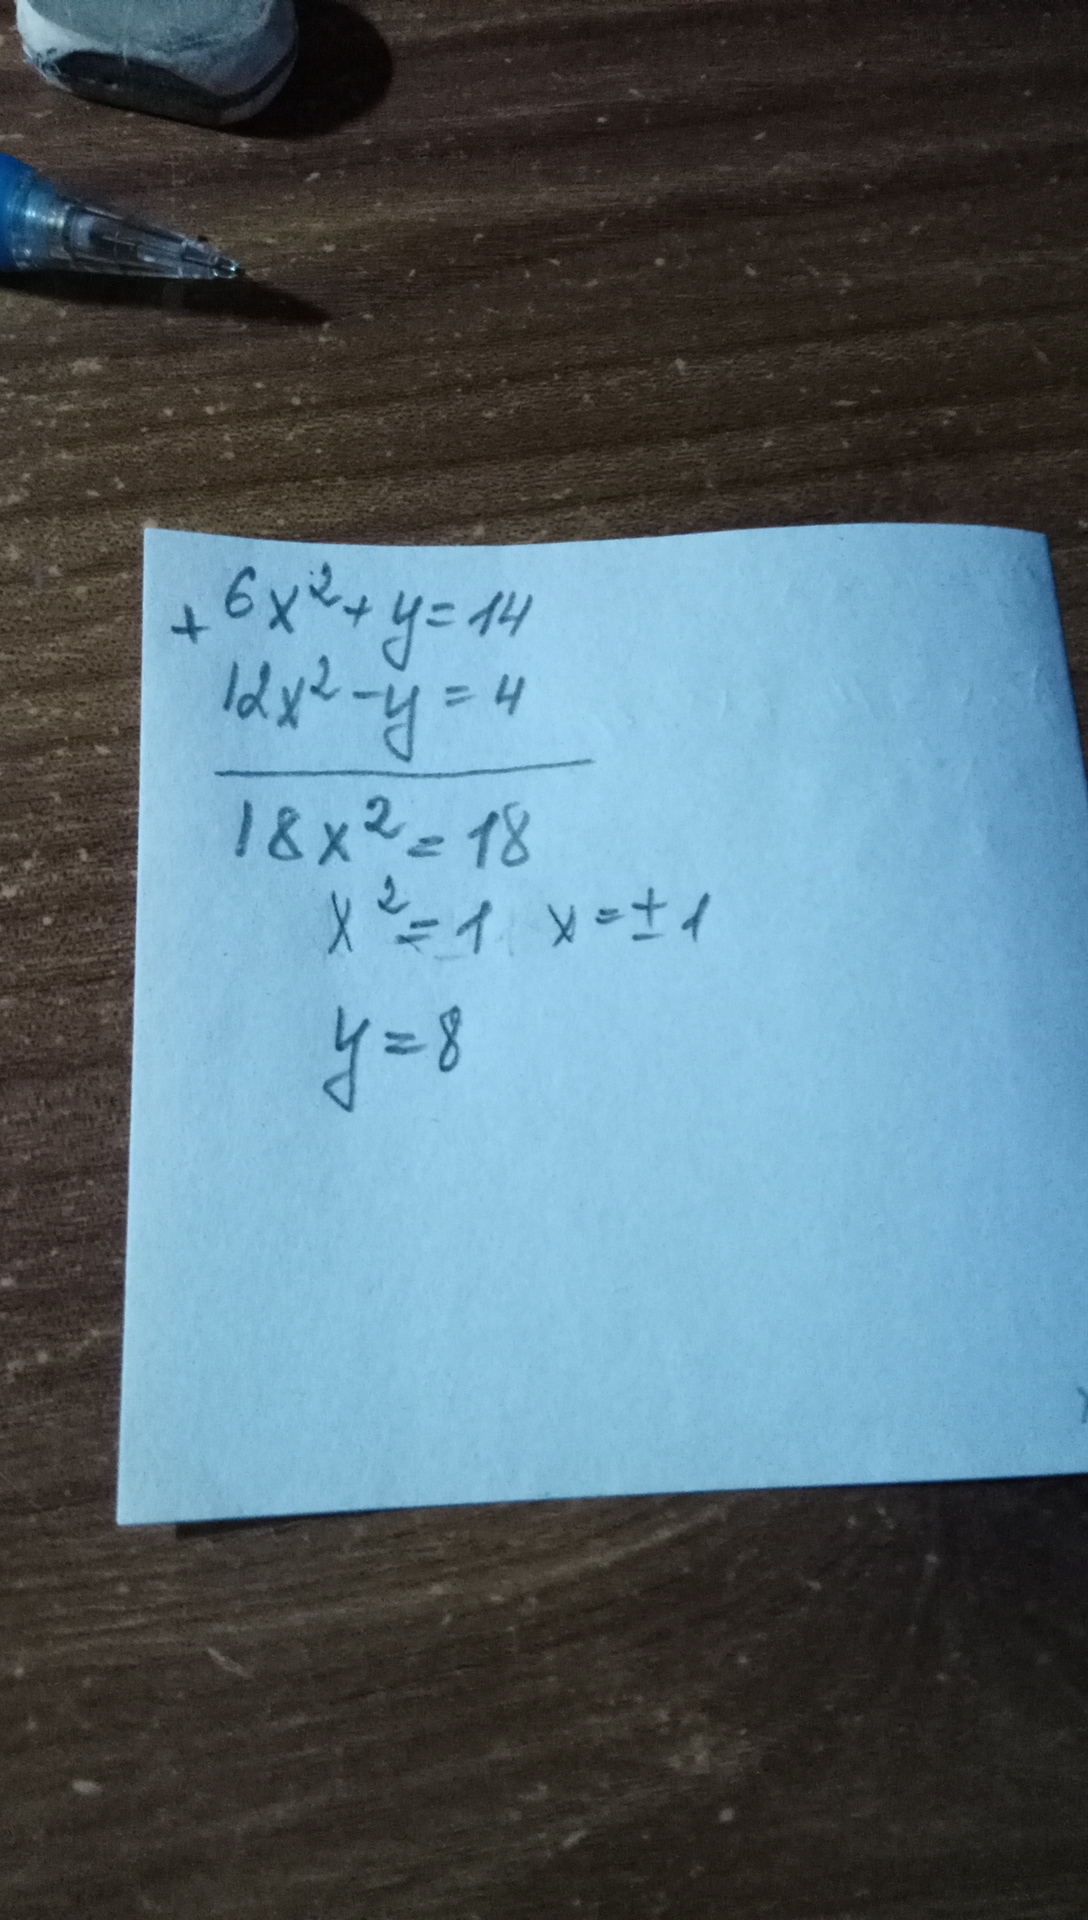 + 6x² + y = 14
12x² - y = 4
18x² = 18
x² = 1 x = ± 1
y = 8